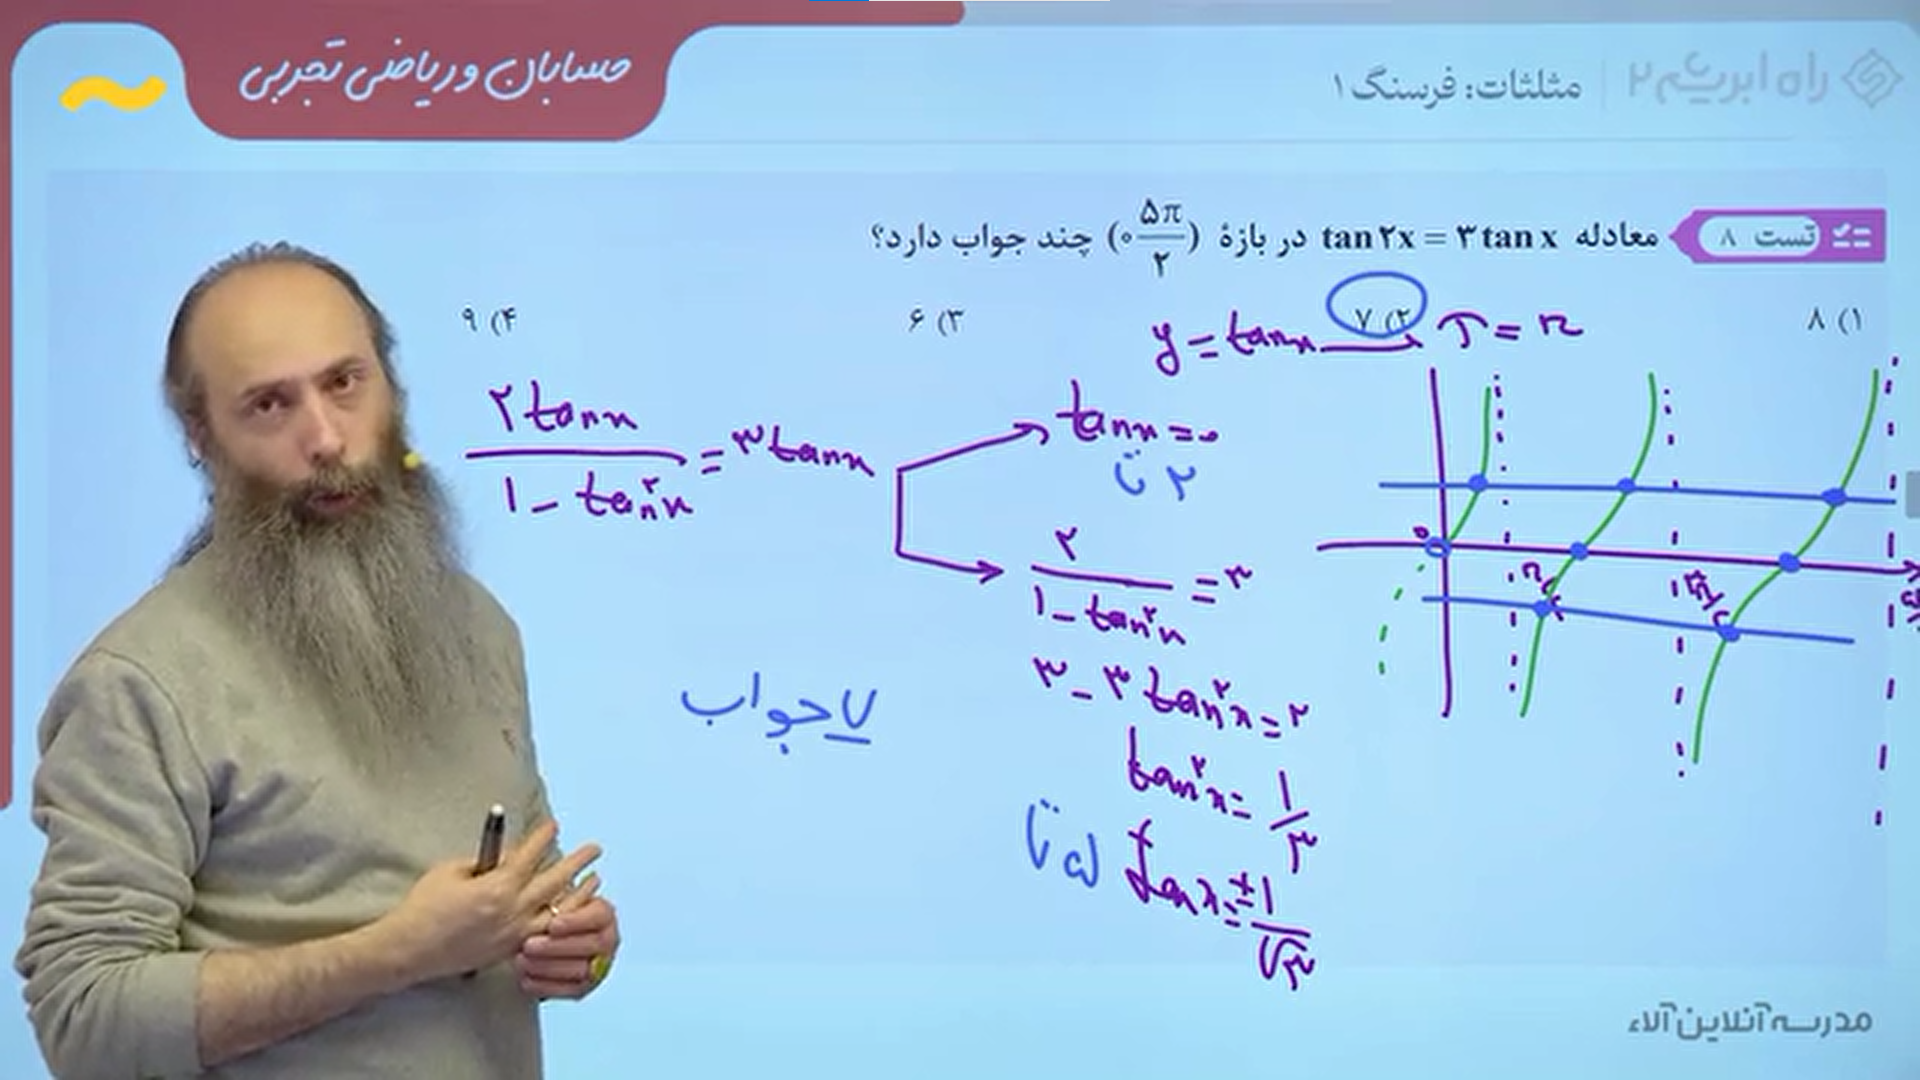 حسابان و ریاضی تجربی
راه ابریشم ۲ | مثلثات: فرسنگ ۱
تست ۸ معادله tan۲x = ۳tan x در بازهٔ (۰ ۵π/۲) چند جواب دارد؟
۱) ۸
۲) ۷
۳) ۶
۴) ۹
y = tanx → T = π
۲tanx / ۱ - tan²x = ۳tanx
tanx = ۰
۲ تا
۲ / ۱ - tan²x = ۳
۳ - ۳tan²x = ۲
tan²x = ۱/۳
tanx = ±۱/√۳
۵ تا
۷ جواب
۰
π/۲
۳π/۲
مدرسه آنلاین آلاء